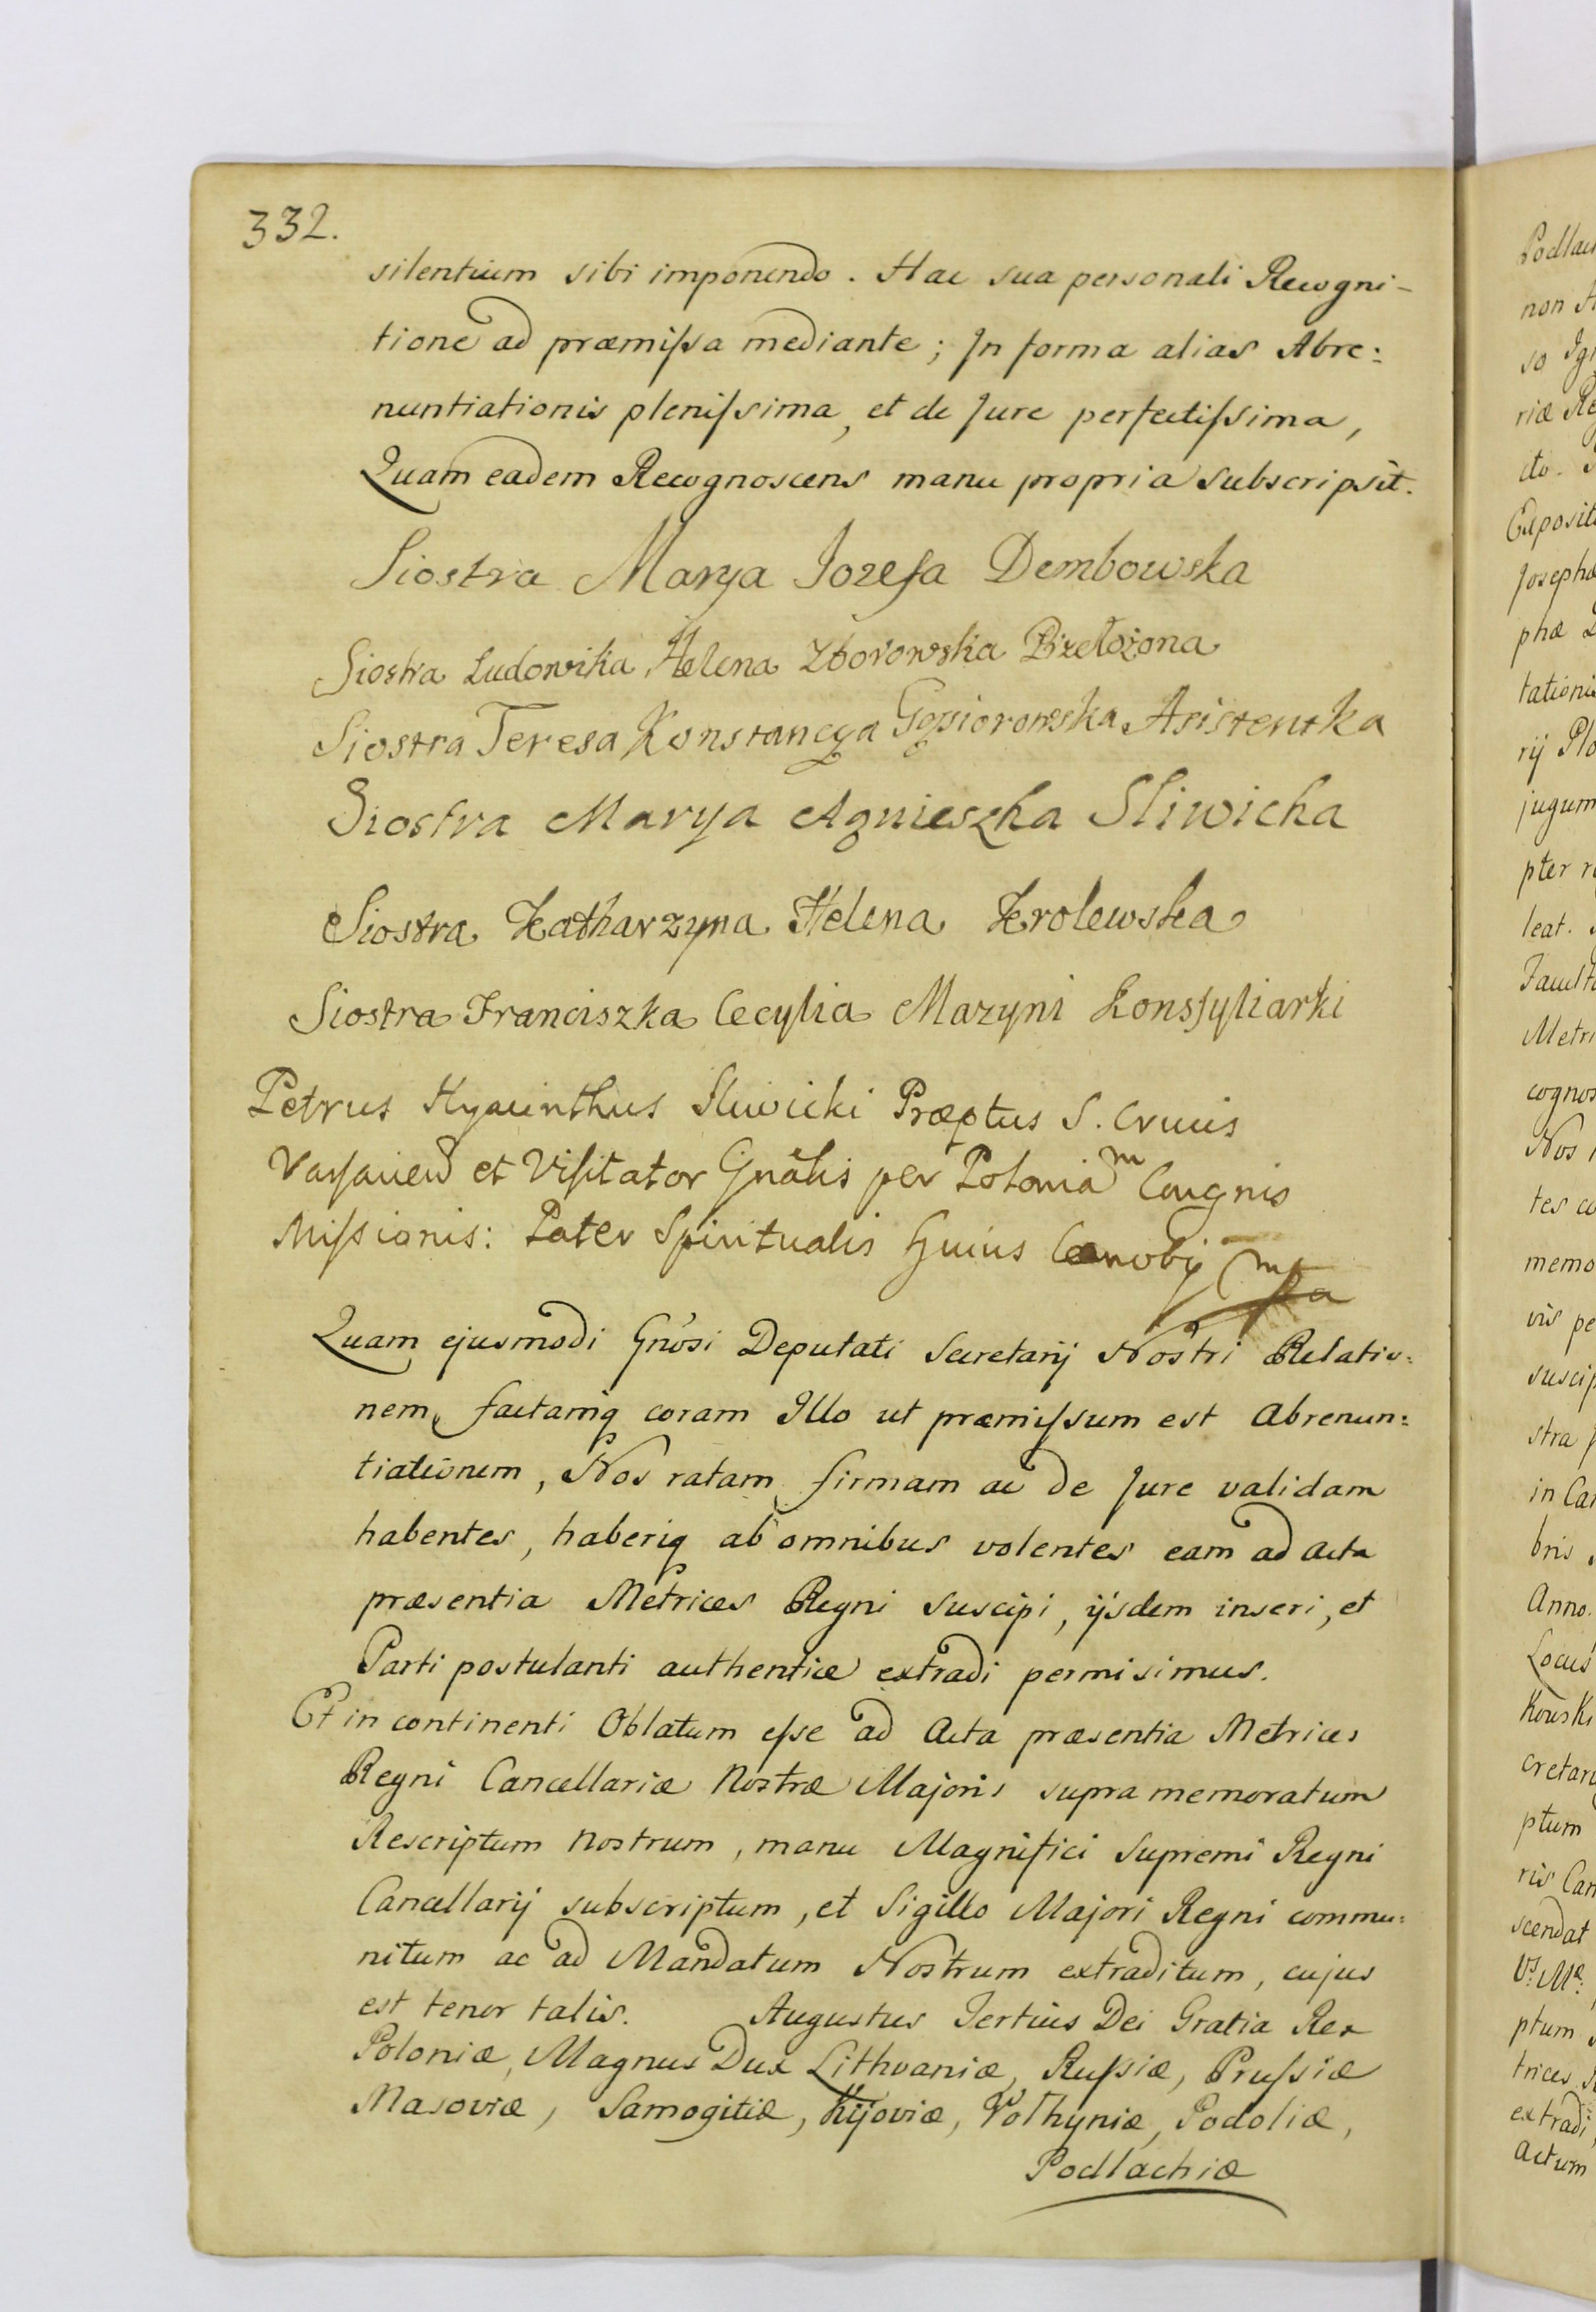 332.
silentium sibi imponendo. Hac sua personali Recogni-
tione ad præmissa mediante; In forma alias Abre:
nuntiationis plenissima, et de Jure perfectissima,
Quam eadem Recognoscens manu propria subscripsit.
Siostra Marya Iozefa Dembowska
Siostra Ludowika Helena Zborowska Przełożona
Siostra Teresa Konstancya Gąsiorowska Asistentka
Siostra Marya Agnieszka Sliwicka
Siostra Katharzyna Helena Krolewska
Siostra Franciszka Cecylia Mazyni Konsyliarki
Petrus Hyacinthus Sliwicki Præptus S. Crucis
Varsavien et Visitator Gnâlis per Poloniam Congnis
Missionis: Pater Spiritualis hujus Cænobij mpa
Quam ejusmodi Gnosi Deputati Secretarij Nostri Relatio:
nem, factamq coram Illo ut præmissum est Abrenun:
tiationem, Nos ratam firmam ac de Jure validam
habentes, haberiq ab omnibus volentes eam ad acta
præsentia Metrices Regni suscipi, ijsdem inseri, et
Parti postulanti authentice extradi permisimus.
Et in continenti Oblatum esse ad Acta præsentia Metrices
Regni Cancellariæ Nostræ Majoris supra memoratum
Rescriptum nostrum, manu Magnifici Supremi Regni
Cancellarij subscriptum, et Sigillo Majori Regni commu:
nitum ac ad Mandatum Nostrum extraditum, cujus
est tenor talis. Augustus Tertius Dei Gratia Rex
Poloniæ, Magnus Dux Lithvaniæ, Russiæ, Prussiæ
Masoviæ, Samogitiæ, Kijoviæ, Volhyniæ, Podoliæ,
Podlachiæ